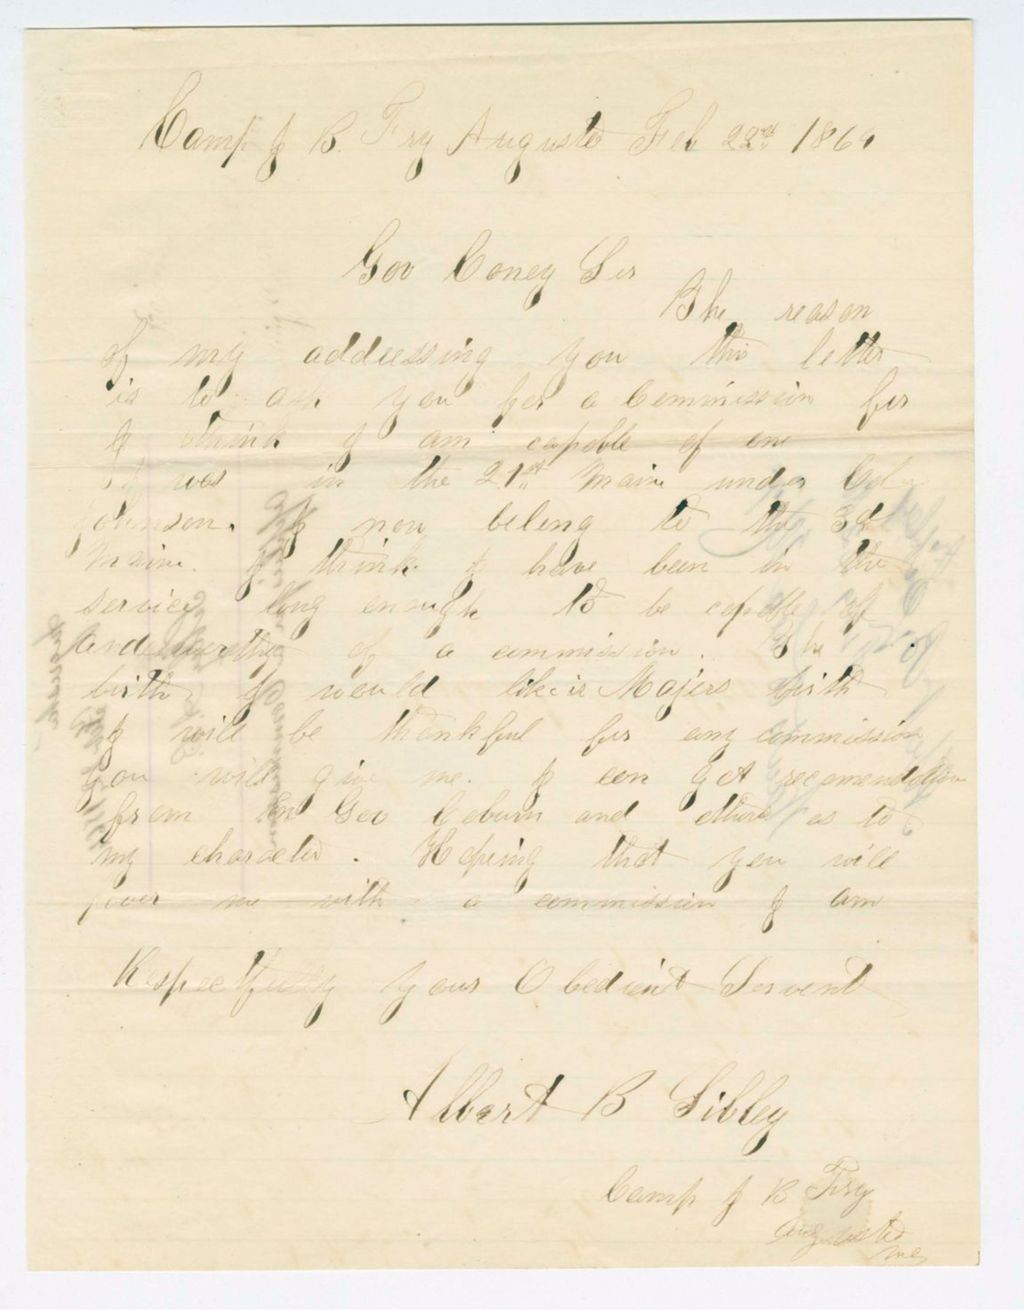 Camp J B. Fry Augusta Feb 22nd 1864
Gov Coney Sir
The reason
of my addressing you this letter
is to ask you for a Commission for
I think I am capable of one
I was in the 21st Maine under Col
Johnson. I now belong to the 3d
Maine. I think I have been in the
service long enough to be capable of
and worthy of a commission. The
birth I would like is Majors birth
I will be thankful for any commission
you will give me. I can get recomendation
from Ex Gov Coburn and others as to
my character. Hoping that you will
favor me with a commission I am
Respectfully your Obedient Servent
Albert B Sibley
Camp J B Fry
Augusta
Me